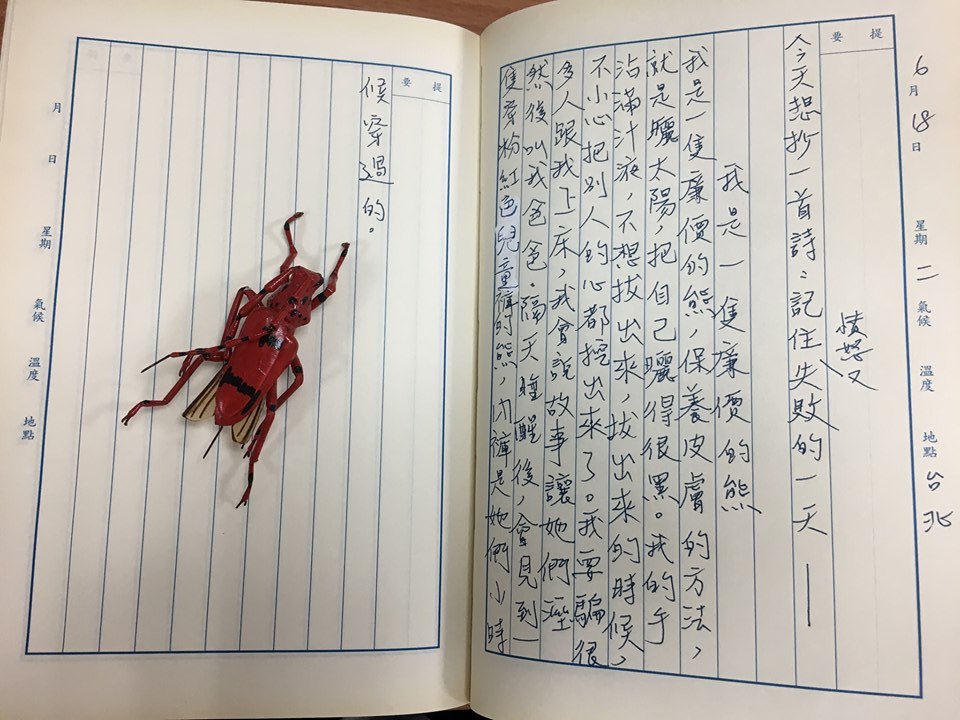 6月18日 星期二 氣候 溫度 地點 台北
提要
憤怒又
今天想抄一首詩：記住失敗的一天——
我是一隻廉價的熊
我是一隻廉價的熊，保養皮膚的方法，
就是曬太陽，把自己曬得很黑。我的手
沾滿汁液，不想拔出來，拔出來的時候，
不小心把別人的心都挖出來了。我要騙很
多人跟我上床，我會說故事讓她們溼
然後叫我爸爸。隔天睡醒後，會見到一
隻穿粉紅色兒童褲的熊，內褲是她們小時
提要
候穿過的。
月 日 星期 氣候 溫度 地點